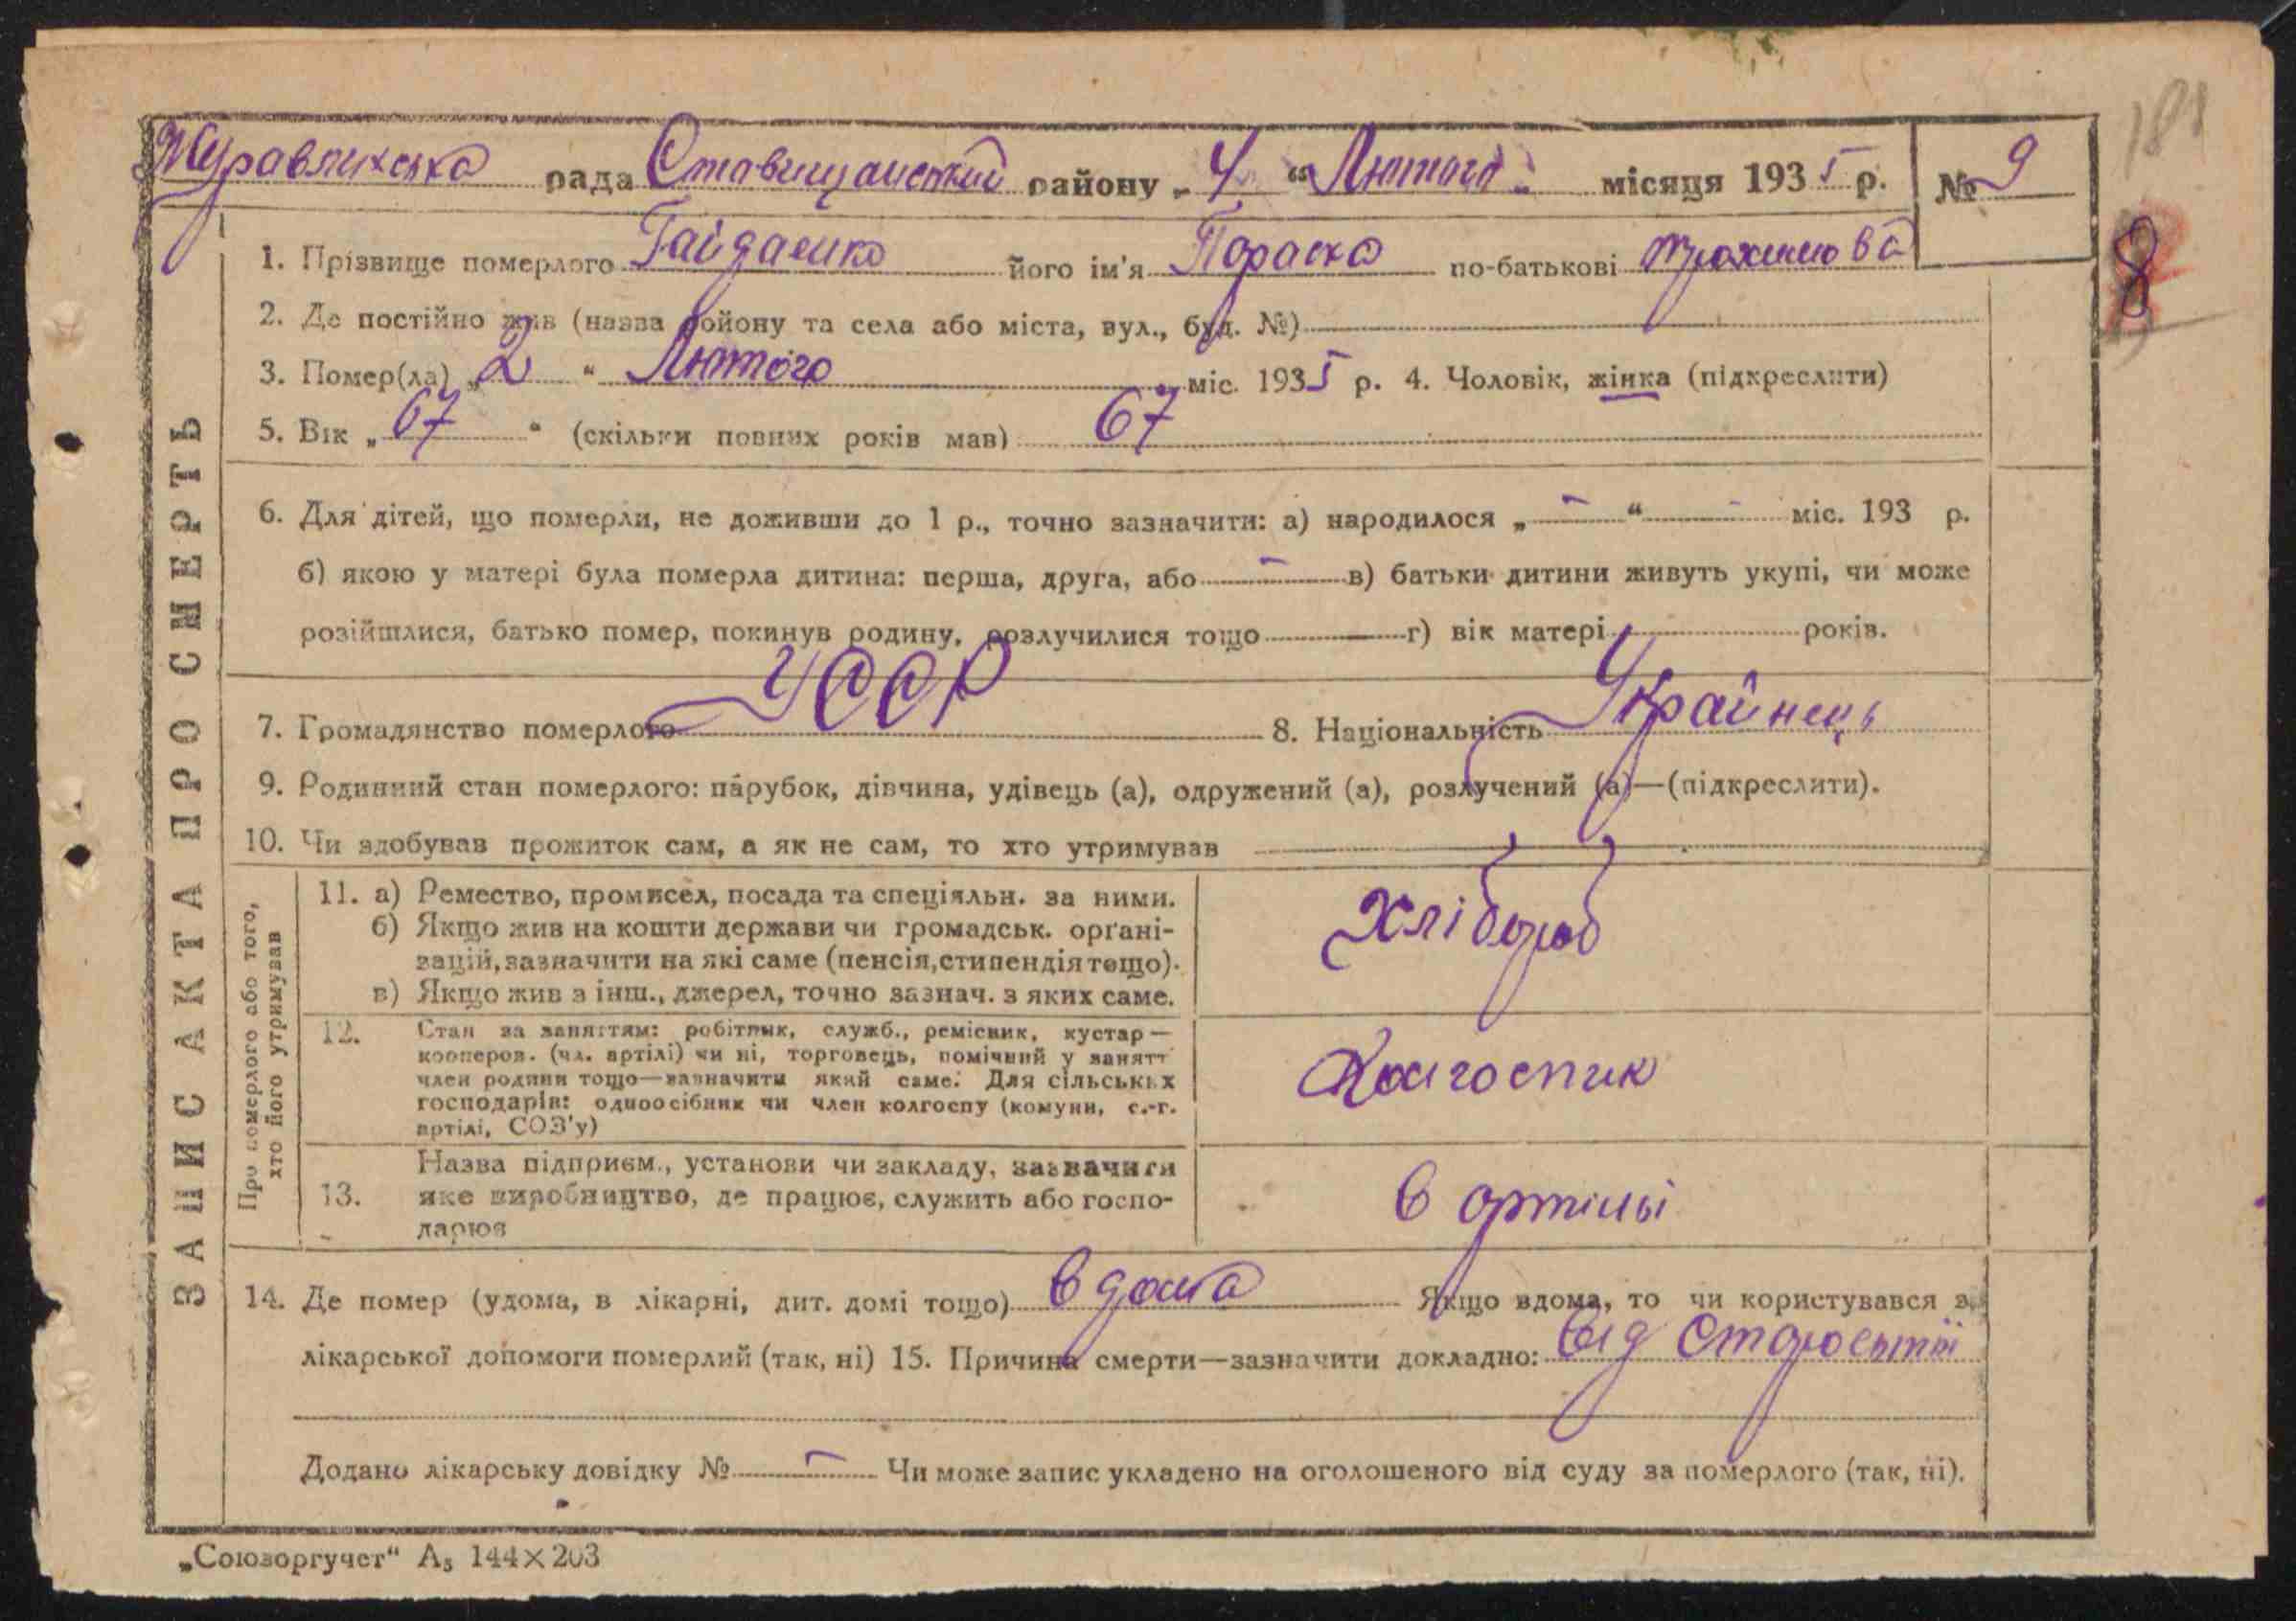 Журавлихська рада Ставищанський району „ 4 “ Лютого місяця 1935 р. № 9
181
1. Прізвище померлого Гайдаенко його ім'я Параска по-батькові
8
2. Де постійно жив (назва району та села або міста, вул., буд. №)
3. Помер(ла) „ 2 “ Лютого міс. 1935 р. 4. Чоловік, жінка (підкреслити)
5. Вік „ 67 “ (скільки повних років мав) 67
6. Для дітей, що померли, не доживши до 1 р., точно зазначити: а) народилося „ – “ – міс. 193 р.
б) якою у матері була померла дитина: перша, друга, або – в) батьки дитини живуть укупі, чи може
розійшлися, батько помер, покинув родину, розлучилися тощо г) вік матері років.
7. Громадянство померлого УССР 8. Національність Українець
9. Родинний стан померлого: парубок, дівчина, удівець (а), одружений (а), розлучений (а)—(підкреслити).
10. Чи здобував прожиток сам, а як не сам, то хто утримував
ЗАПИС АКТА ПРО СМЕРТЬ
Про померлого або того,
хто його утримував
11. а) Ремество, промисел, посада та спеціяльн. за ними.
б) Якщо жив на кошти держави чи громадськ. орґані-
зацій, зазначити на які саме (пенсія, стипендія тощо).
в) Якщо жив з інш., джерел, точно зазнач. з яких саме.
Хлібороб
12. Стан за заняттям: робітник, служб., ремісник, кустар—
кооперов. (чл. артілі) чи ні, торговець, помічний у занятт
член родини тощо—зазначити який саме. Для сільських
господарів: одноосібник чи член колгоспу (комуни, с.-г.
артілі, СОЗ'у)
Колгоспник
13. Назва підприєм., установи чи закладу, зазначити
яке виробництво, де працює, служить або госпо-
дарює
в артілі
14. Де помер (удома, в лікарні, дит. домі тощо) вдома Якщо вдома, то чи користувався з
лікарської допомоги померлий (так, ні) 15. Причина смерти—зазначити докладно: Від Старости
Додано лікарську довідку № – Чи може запис укладено на оголошеного від суду за померлого (так, ні).
„Союзоргучет“ А5 144×203